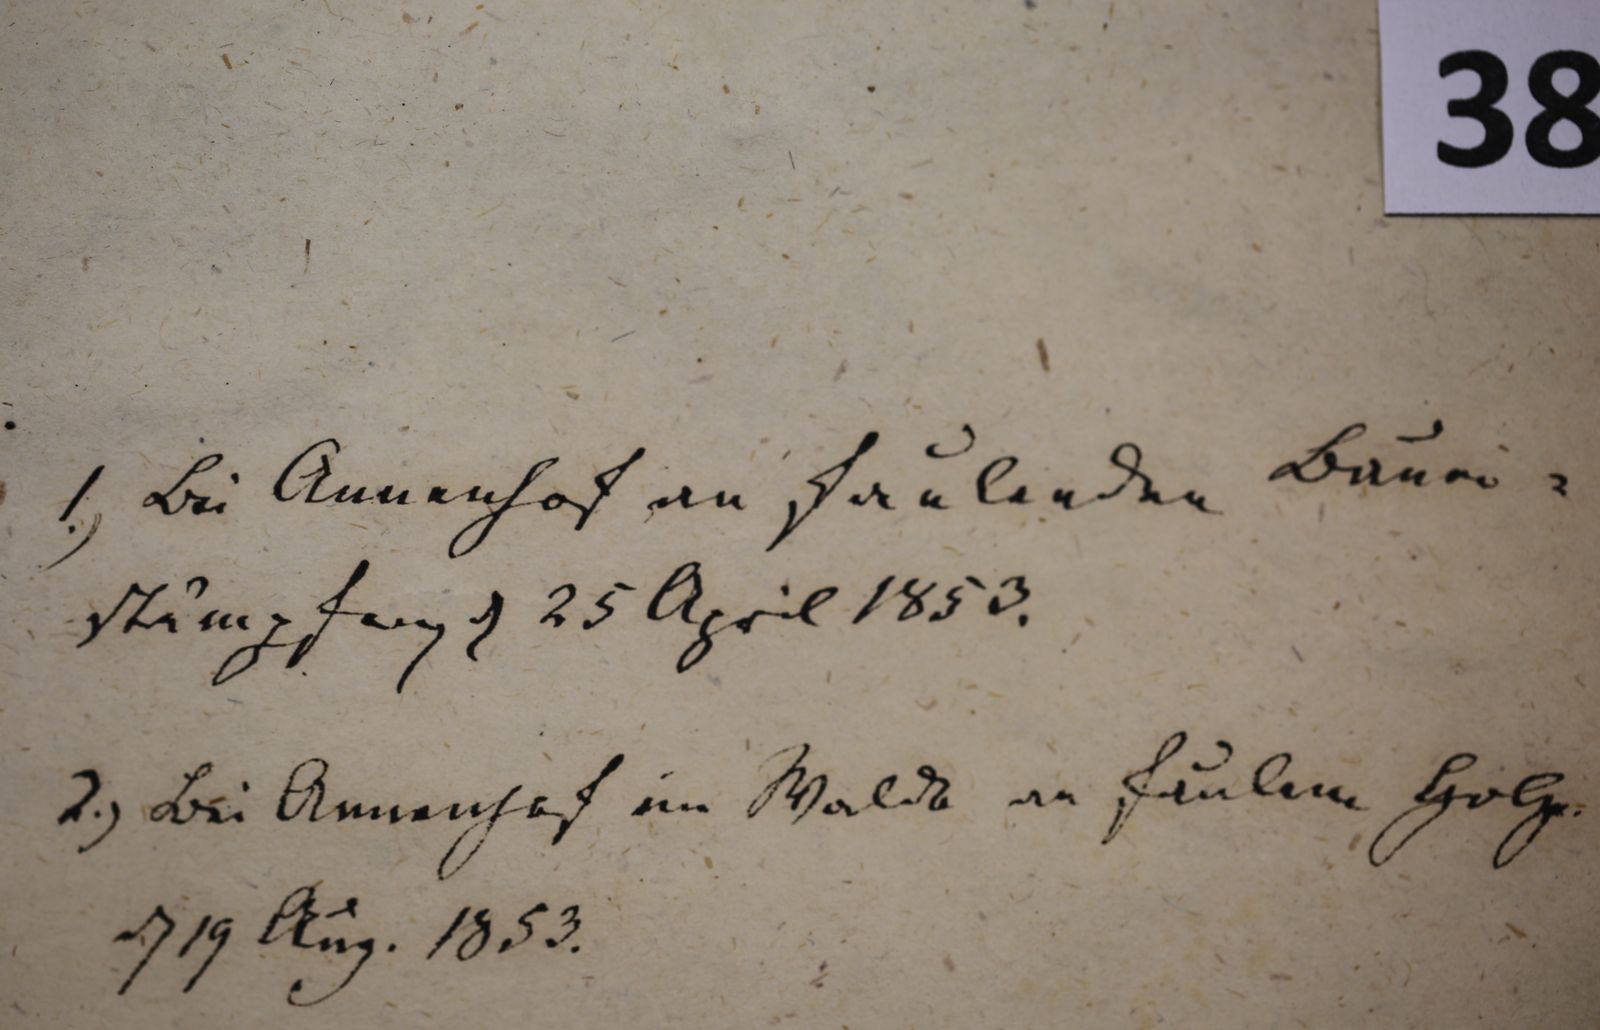 38
1.) Bei Annenhof an faulenden Baum=
stümpfen, d 25 April 1853.
2.) Bei Annenhof im Walde an faulem Holze.
d 19 Aug. 1853.